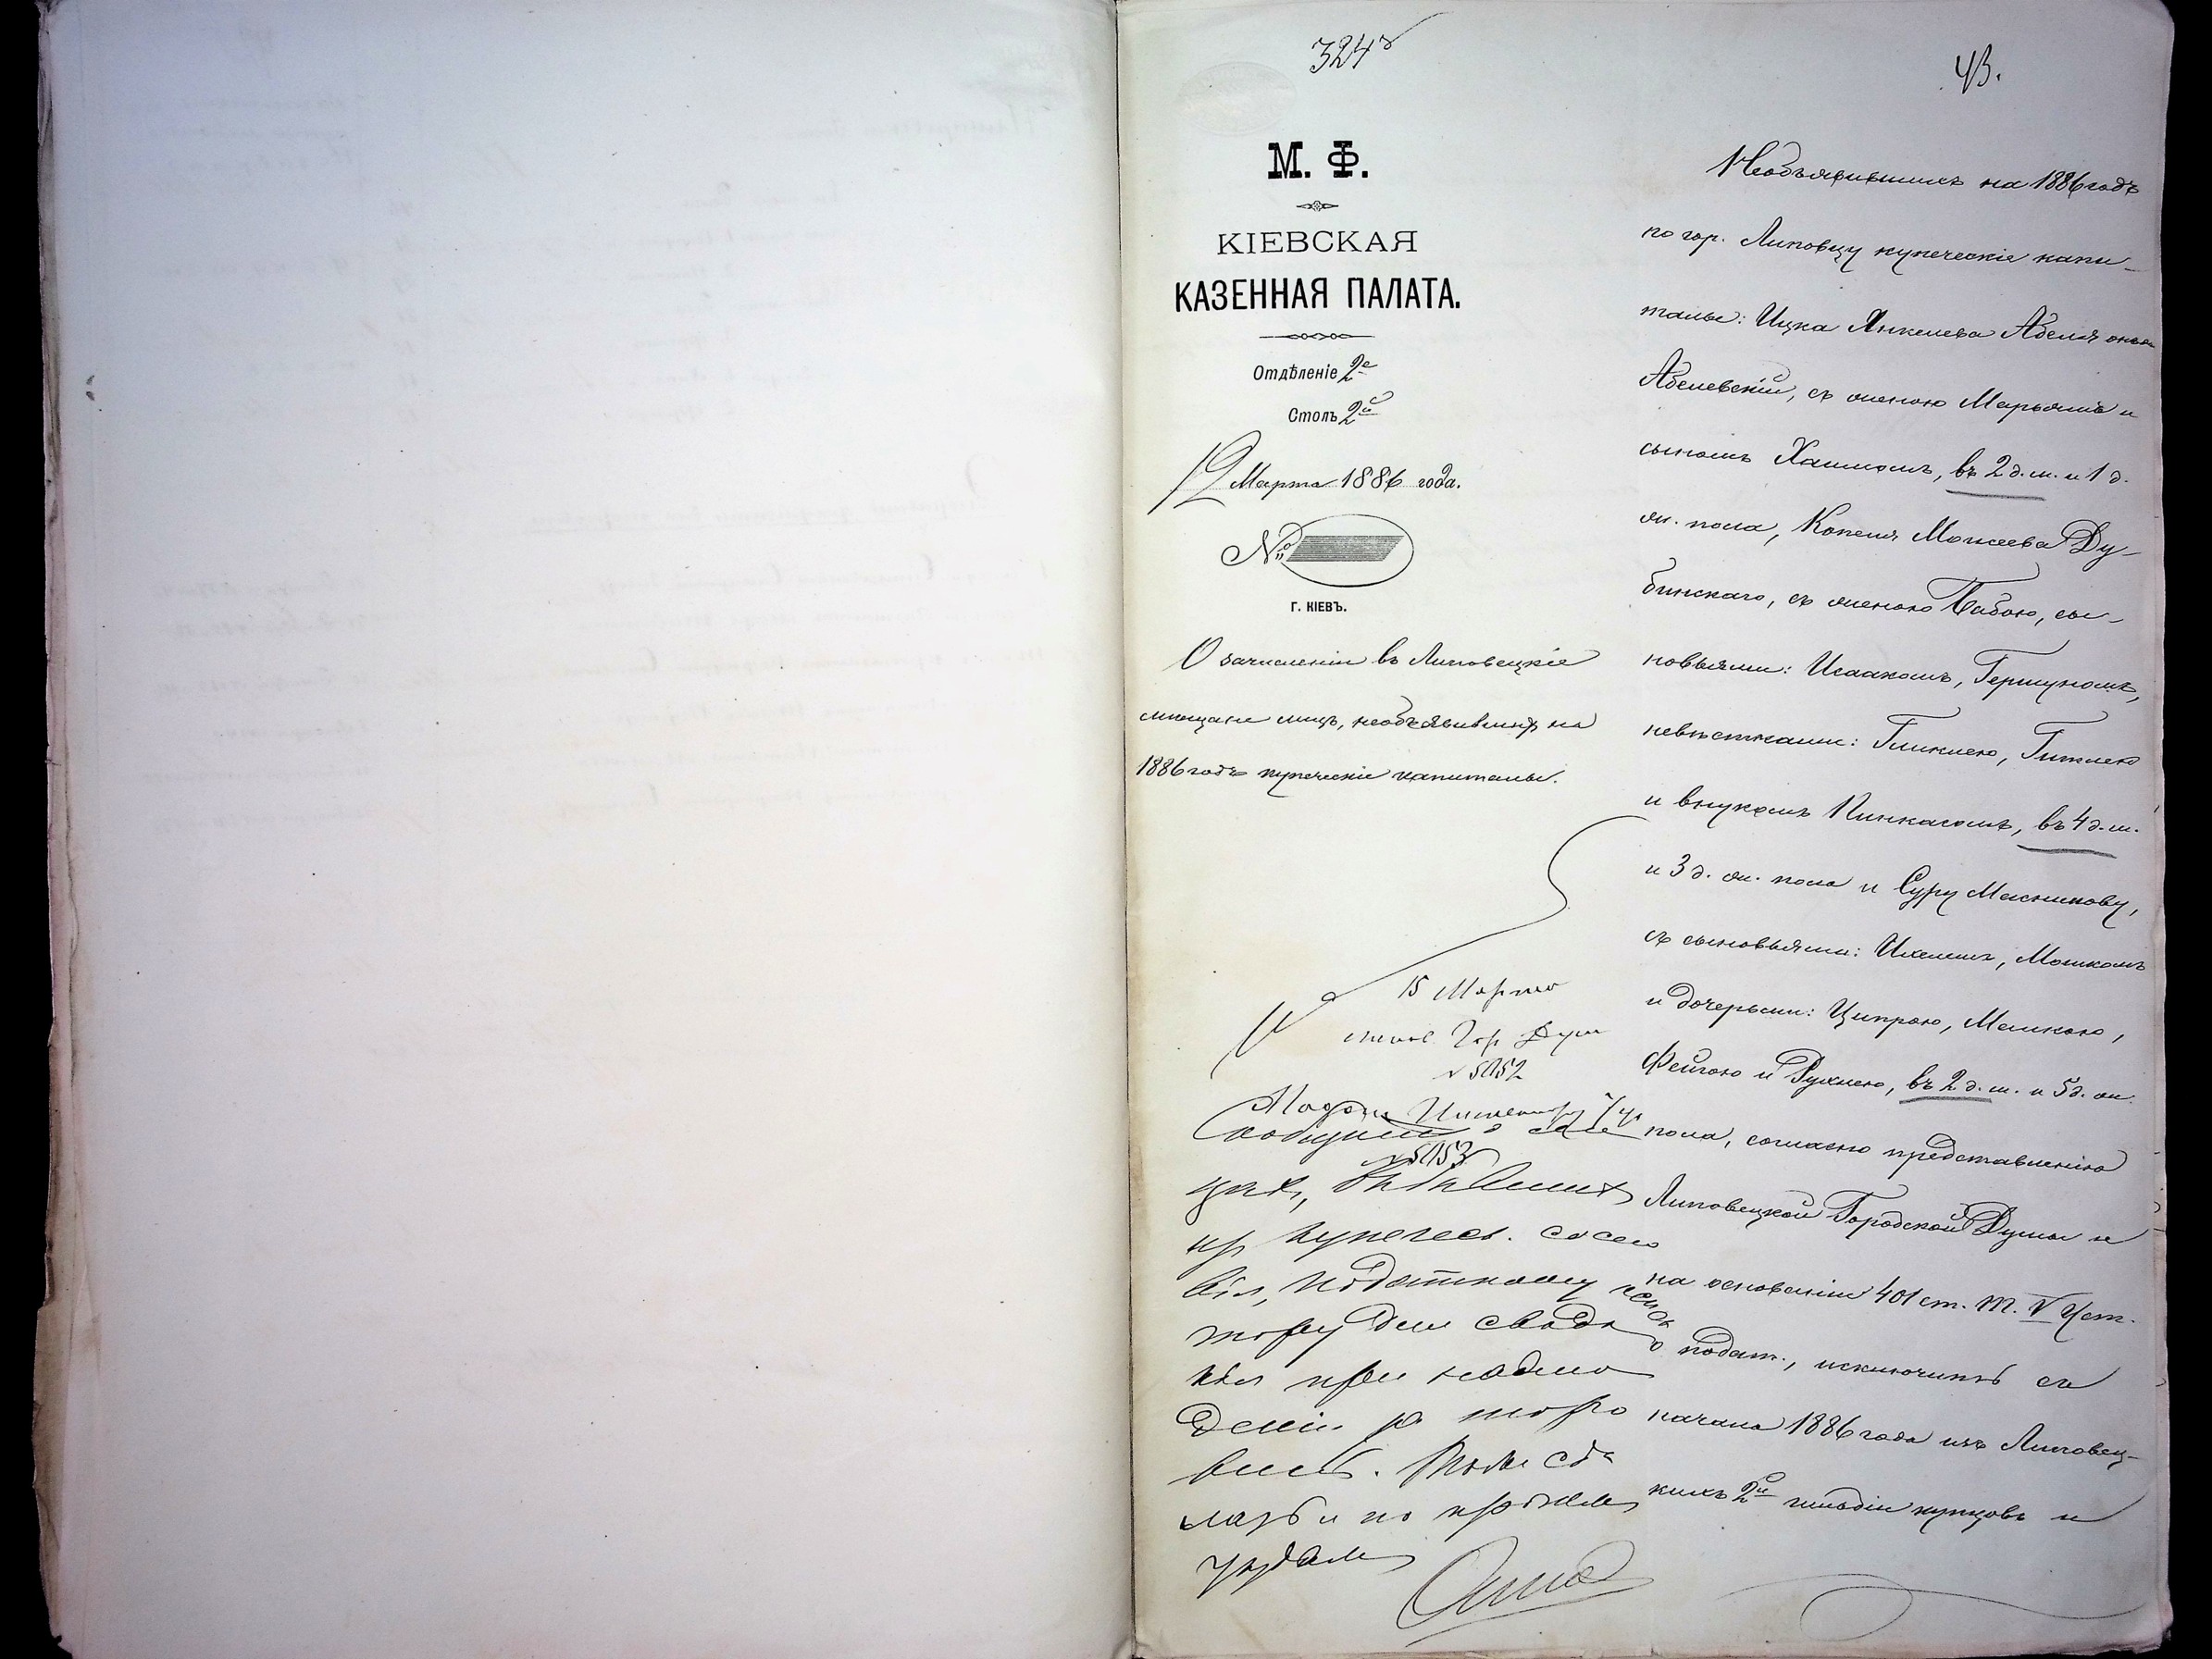 324
43.
М. Ф.
КІЕВСКАЯ
КАЗЕННАЯ ПАЛАТА.
Отдѣленіе 2е
Столъ 2й
12 Марта 1886 года.
№
Г. КІЕВЪ.
О зачисленіи въ Липовецкіе
мѣщане лицъ, необъявившихъ на
1886 годъ купеческіе капиталы.
15 Марта
Гор Дум
№ 5052
№ 5053
Сообщить о
купечес. сосло
вія, Податному инспек
тору для свѣдѣ
нія при наблю
деніи за торго
влей.
уѣздамъ
Необъявившихъ на 1886 годъ
по гор. Липовцу купеческіе капи-
талы: Ицка Янкелева Абеля онъ же
Абелевскій, съ женою Марьямъ и
сыномъ Хаимомъ, въ 2 д. м. и 1 д.
ж. пола, Копеля Мошеева Ду-
бинскаго, съ женою Бабою, сы-
новьями: Исаакомъ, Гершуномъ,
невѣстками: Гликлею, Гитлею
и внукомъ Пинкасомъ, въ 4 д. м.
и 3 д. ж. пола и Суру Масникову,
съ сыновьями: Ихелемъ, Мошкомъ
и дочерьми: Ципрою, Малкою,
Фейгою и Рухлею, въ 2 д. м. и 5 д. ж.
пола, согласно представленію
Липовецкой Городской Думы и
на основаніи 401 ст. т. V Уст.
о подат., исключить съ
начала 1886 года изъ Липовец-
кихъ 2й гильдіи купцовъ и